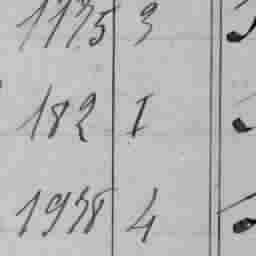 1175 3
182 I
1978 4